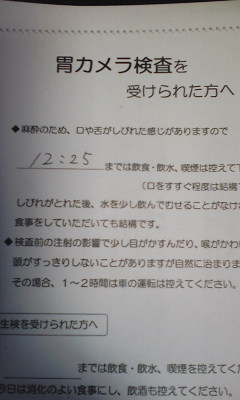 胃カメラ検査を
受けられた方へ
◆麻酔のため、口や舌がしびれた感じがありますので
12:25 までは飲食・飲水、喫煙は控えて
(口をすすぐ程度は結構
しびれがとれた後、水を少し飲んでむせることがなけ
食事をしていただいても結構です。
◆検査前の注射の影響で少し目がかすんだり、喉がかわ
頭がすっきりしないことがありますが自然に治りま
その場合、1～2時間は車の運転は控えてください。
生検を受けられた方へ
までは飲食・飲水、喫煙を控えてく
今日は消化のよい食事にし、飲酒も控えてくだ